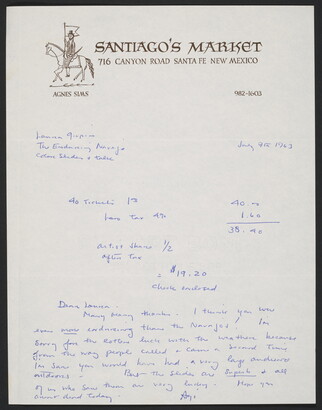 SANTIAGO'S MARKET
716 CANYON ROAD SANTA FE NEW MEXICO
AGNES SIMS
982-1603
Laura Gilpin
The Enduring Navajo
Color Slides & Talk
July 1963
40 Tickets 1.00
40.00
less Tax 4%
1.60
38.40
Artist Share 1/2
after Tax
= $19.20
Check enclosed
Dear Laura -
Many Many thanks - I think you were
even more enduring than the Navajos! I'm
Sorry for the rotten luck with the weather because
from the way people called & came a second time
I'm sure you would have had a very large audience
outdoors - But the slides are Superb & all
of us who saw them are very lucky - Hope you
dried today -